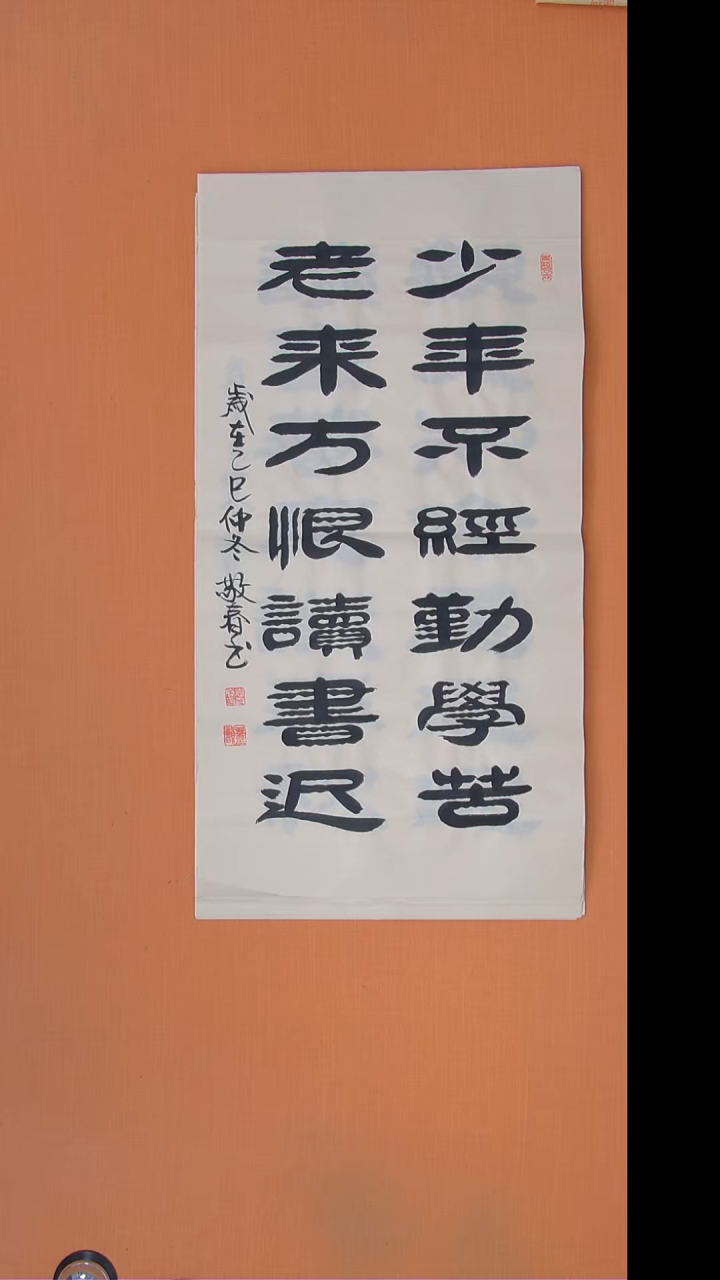 少年不經勤學苦
老来方恨讀書迟
歲在乙巳仲冬 敬春书